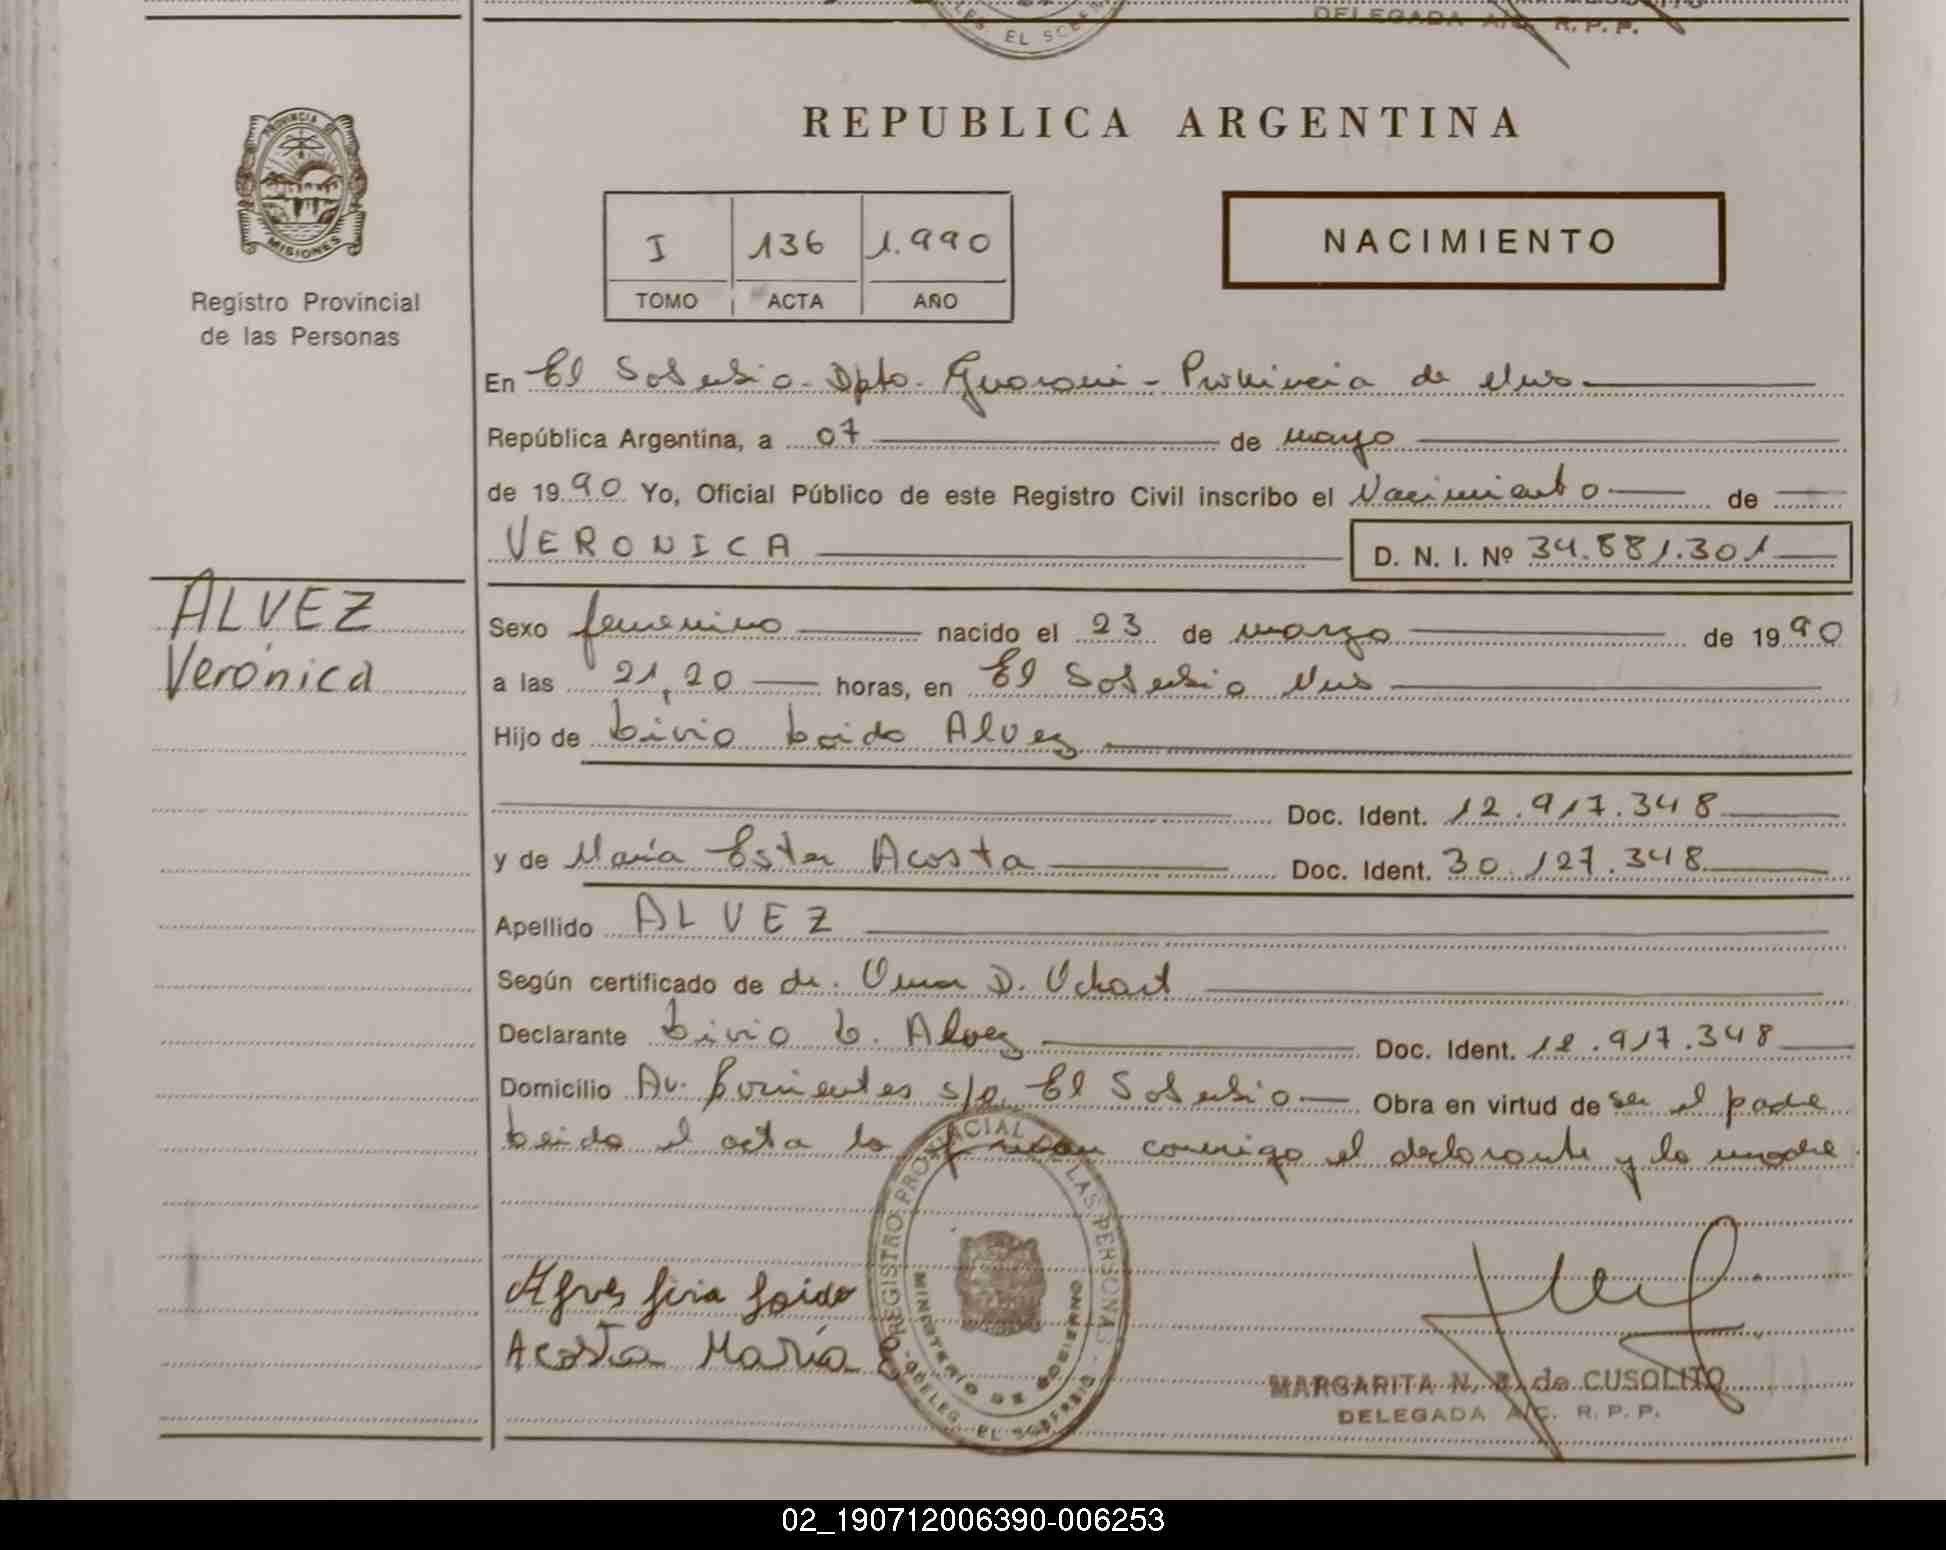 DELEGADA A/C. R. P. P.
EL SOBERBIO
REPUBLICA ARGENTINA
PROVINCIA DE
MISIONES
Registro Provincial
de las Personas
I 136 1.990
TOMO ACTA AÑO
NACIMIENTO
En El Soberbio - Dpto. Guarani - Provincia de Mnes
República Argentina, a 07 de mayo
de 1990 Yo, Oficial Público de este Registro Civil inscribo el Nacimiento de
VERONICA D. N. I. Nº 34.881.301
ALVEZ
Verónica
Sexo femenino nacido el 23 de marzo de 1990
a las 21,20 horas, en El Soberbio Mnes
Hijo de Livio Loido Alvez
Doc. Ident. 12.917.348
y de María Ester Acosta Doc. Ident. 30.127.348
Apellido ALVEZ
Según certificado de dr. Omar D.
Declarante Livio L. Alvez Doc. Ident. 12.917.348
Domicilio Av. Corrientes s/n El Soberbio Obra en virtud de ser el padre
Leida el acta la firman conmigo el declarante y la madre
REGISTRO PROVINCIAL DE LAS PERSONAS
MINISTERIO DE GOBIERNO
DELEG. EL SOBERBIO
Alves Livio Loido
Acosta María E
MARGARITA N. B. de CUSOLITO
DELEGADA A/C. R. P. P.
02_190712006390-006253